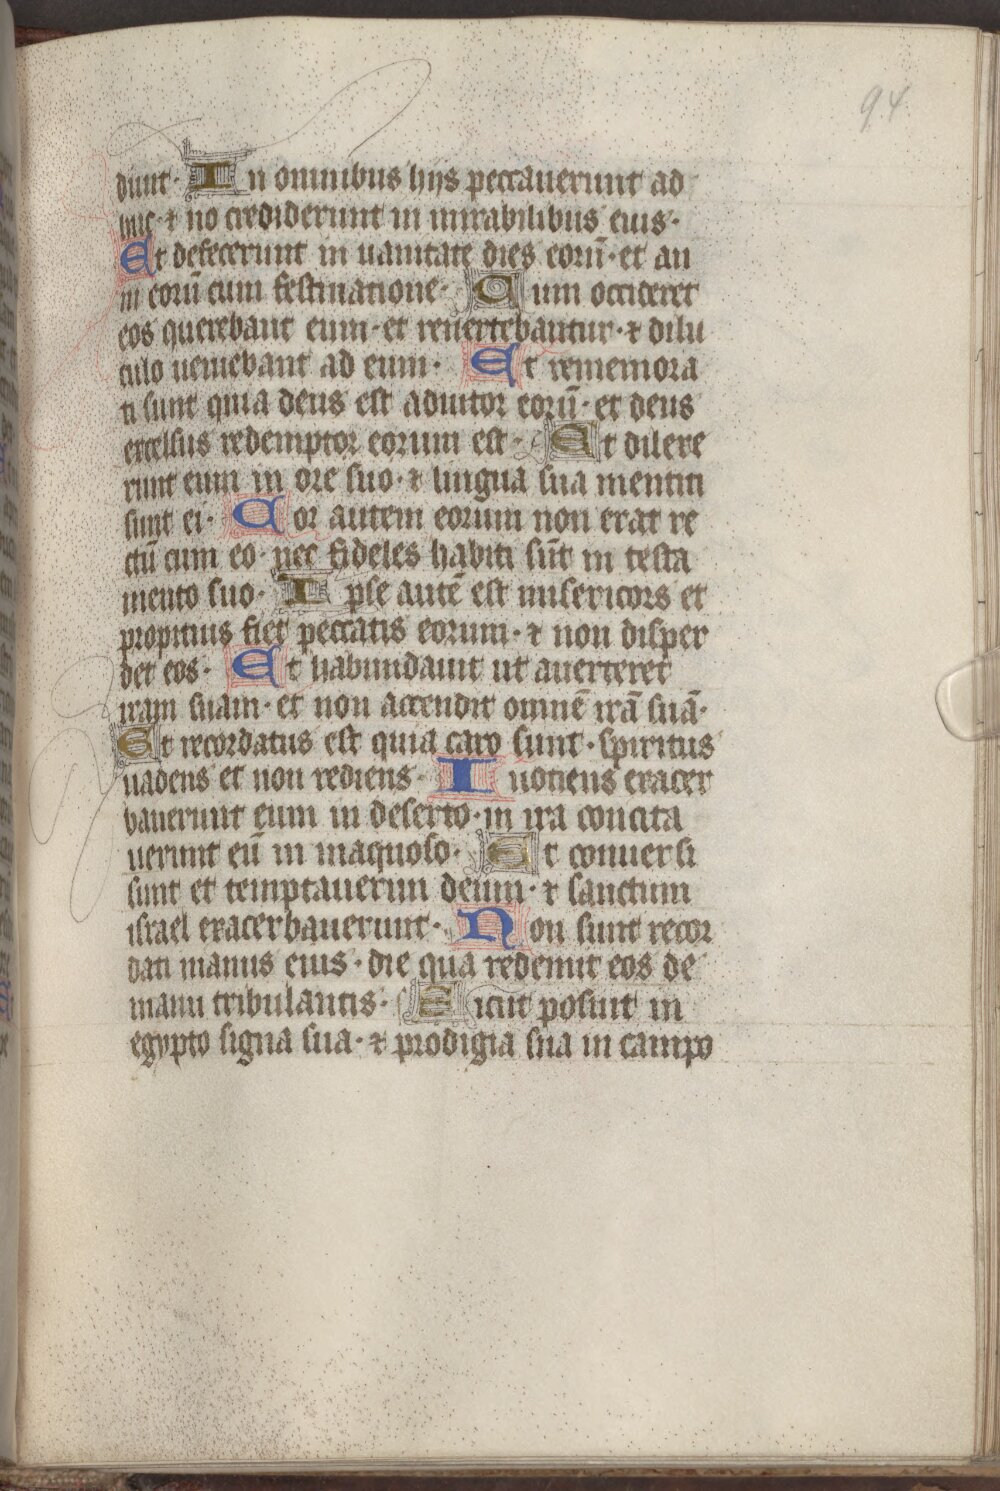 94
dunt· In omnibus hijs peccauerunt ad
huc· ⁊ nō crediderunt in mirabilibus eius·
Et defecerunt in uanitate dies eorū· et an
ni eorū cum festinatione· Cum occideret
eos querebant eum· et reuertebantur· ⁊ dilu
culo ueniebant ad eum· Et rememora
ti sunt quia deus est adiutor eorū· et deus
excelsus redemptor eorum est· Et dilexe
runt eum in ore suo· ⁊ lingua sua mentiti
sunt ei· Cor autem eorum non erat re
ctū cum eo· nec fideles habiti sūt in testa
mento suo· Ipse autē est misericors et
propitius fiet peccatis eorum· ⁊ non disper
det eos· Et habundauit ut auerteret
iram suam· et non accendit omnē irā suā·
Et recordatus est quia caro sunt· spiritus
uadens et non rediens· Iuotiens exacer
bauerunt eum in deserto· in ira concita
uerunt eū in inaquoso· Et conuersi
sunt et temptauerunt deum· ⁊ sanctum
israel exacerbauerunt· Non sunt recor
dati manus eius· die qua redemit eos de
manu tribulantis· Sicut posuit in
egypto signa sua· ⁊ prodigia sua in campo